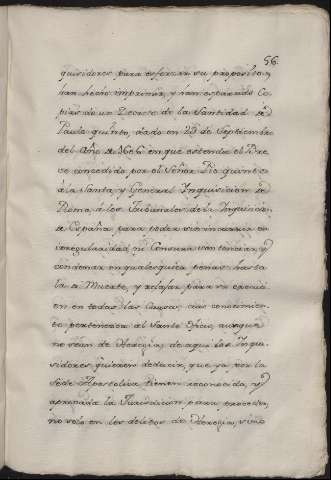 56
quisidores para esforzar su proposito,
han hecho imprimir, y han esparcido Co
pias de un Decreto de la Santidad de
Paulo quinto, dado en 29 de Septiembre
del Año de 1606 en que estende el Pre
ce concedido por el Señor Pio quinto
á la Santa, y General Inquisicion de
Roma, á los Tribunales de la Inquisicion
de España para poder sin incurrir en
irregularidad ni Censura sentenciar, y
condenar en qualesquiera penas hasta
la de Muerte, y relajar para su egecuci
on en todas las Causas, cuio conocimien
to pertenezca al Santo Oficio, aunque
no sean de Heregia, de aqui los Inqui
sidores quieren deducir, que ya por la
Sede Apostolica tienen reconocida, y
aprovada la Jurisdiccion para proceder,
no solo en los delitos de Heregia, sino